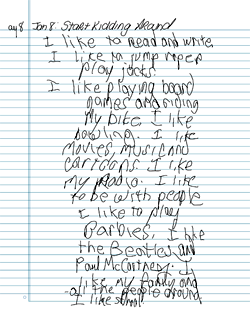 Jan 8 Start Kidding Around
I like to Read and write.
I like to jump roper
Play jacks.
I like playing board
games and riding
My bike. I like
bowling. I like
Movies, music and
cartoons. I like
my Radio. I like
to be with people
I like to play
Barbies. I like
the Beatles and
Paul McCartney. I
like my family and
all the people around.
I like school